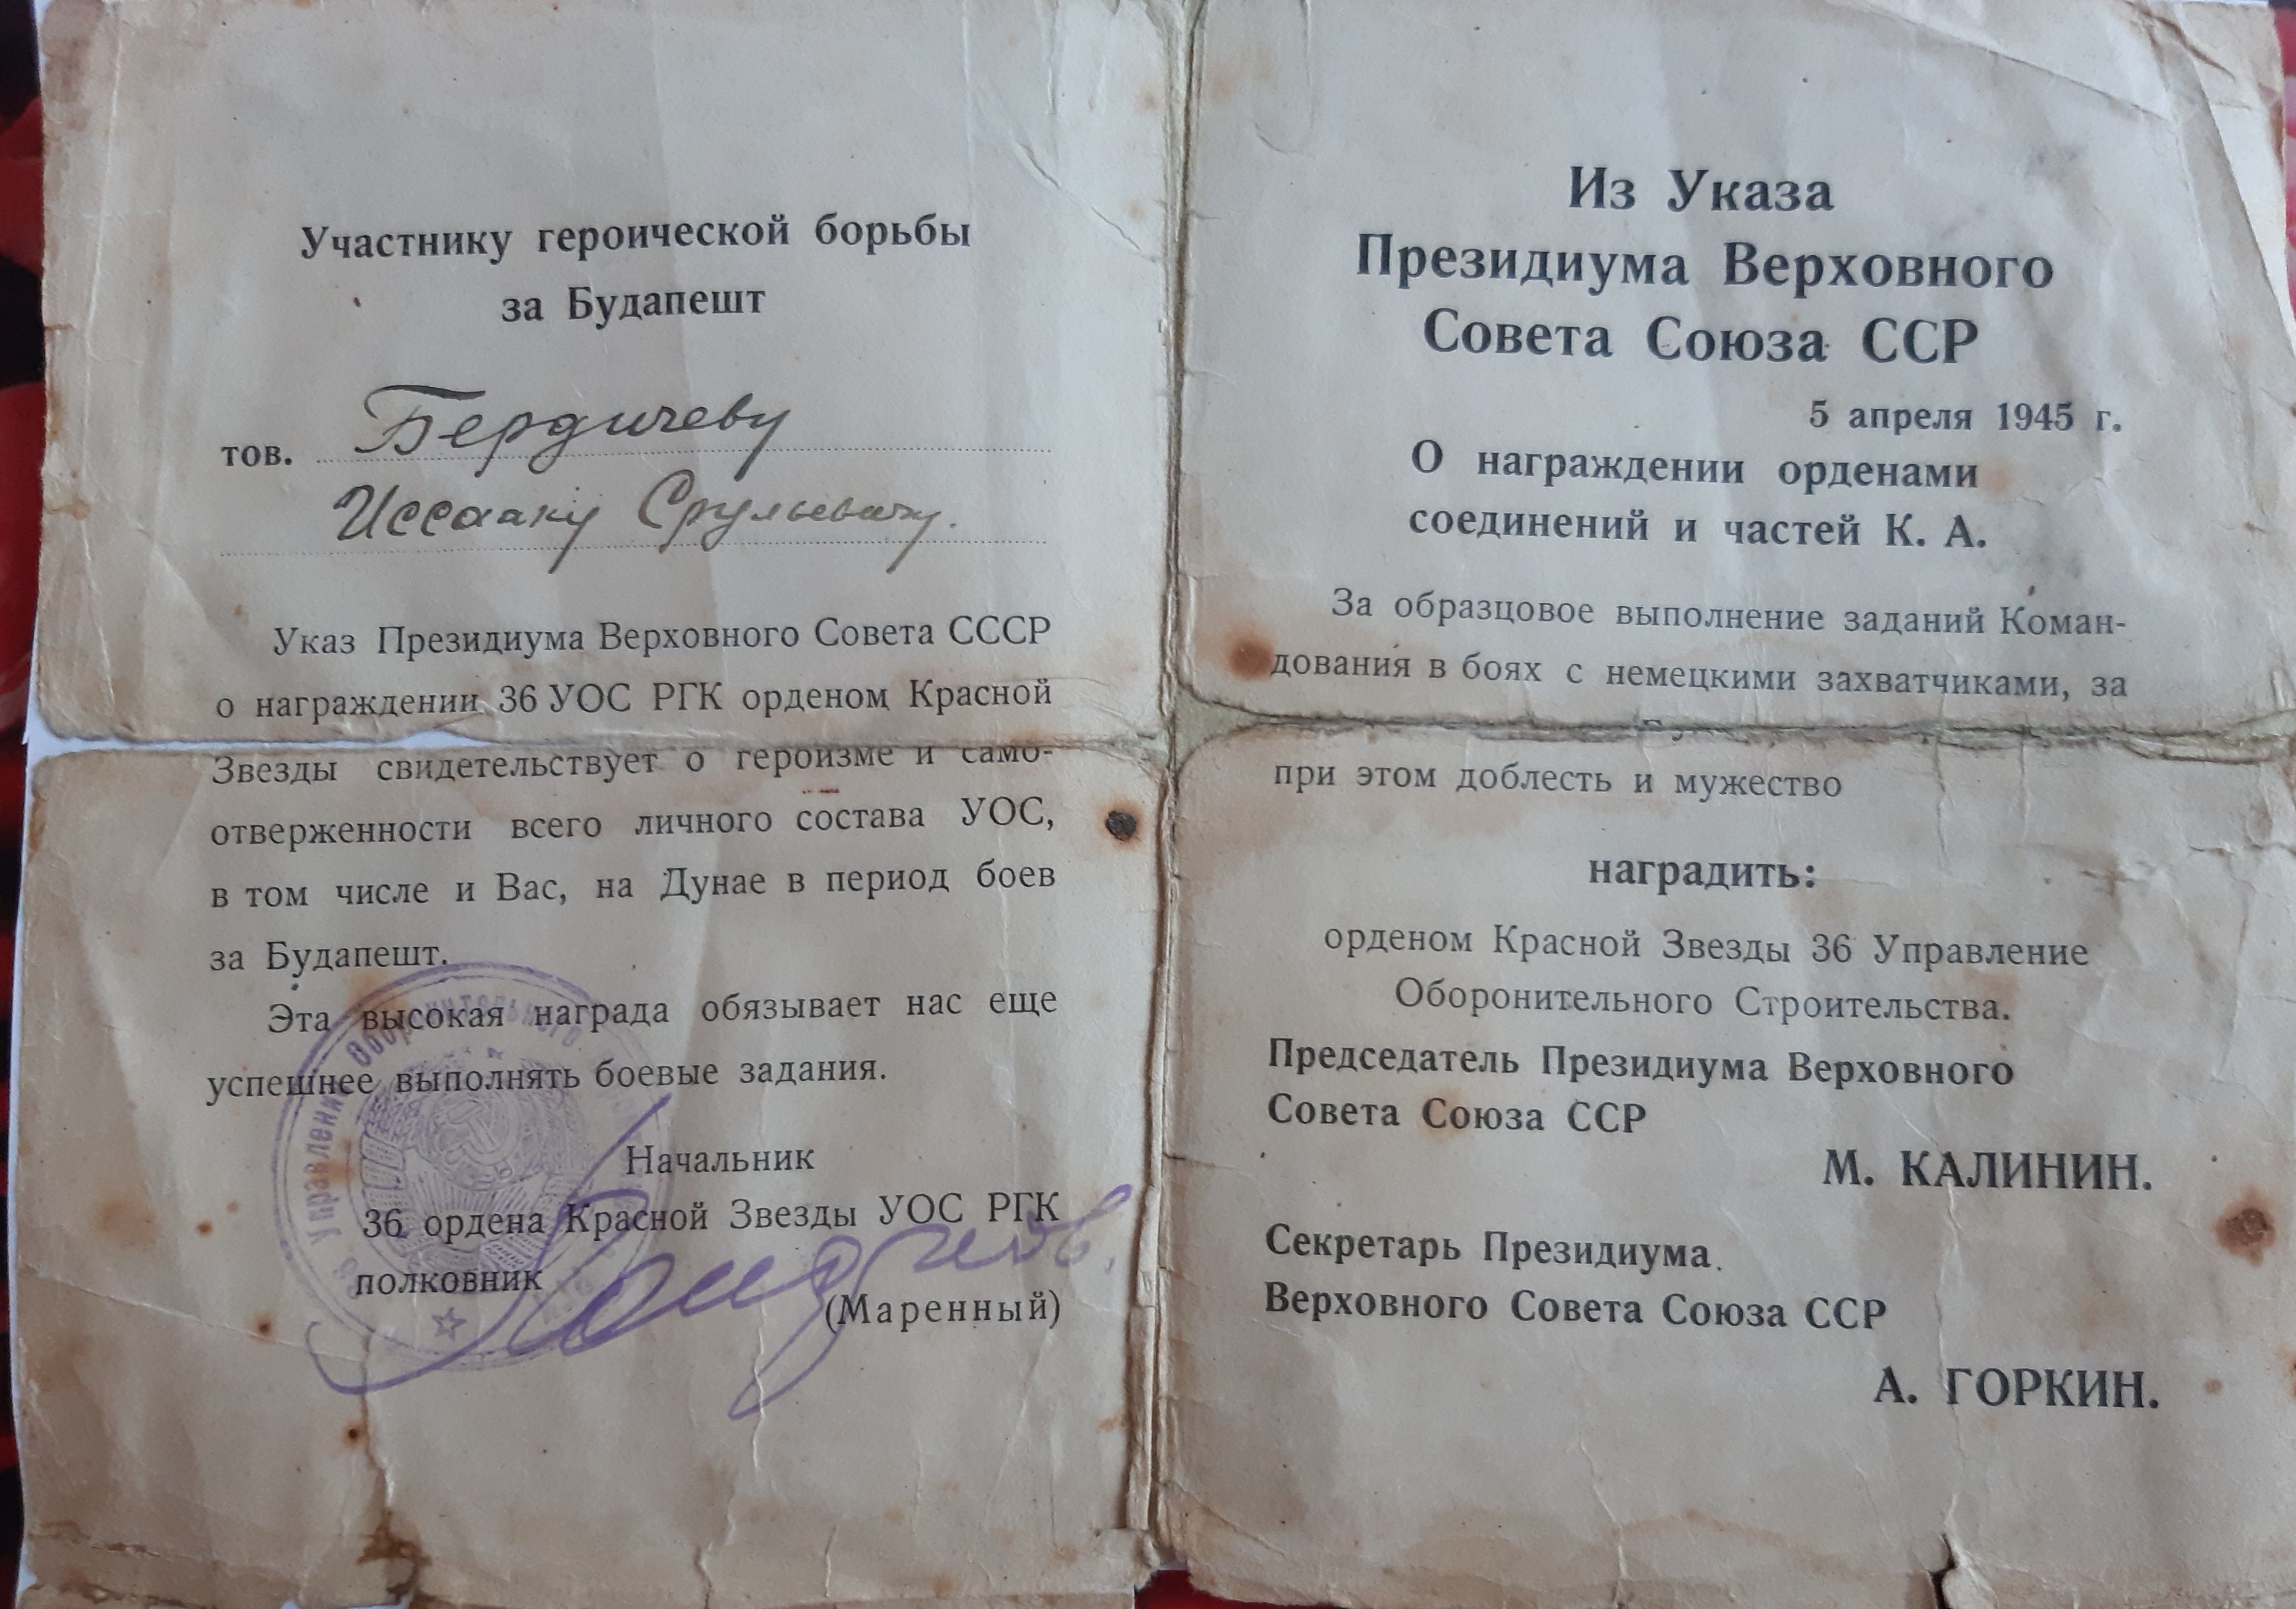 Участнику героической борьбы
за Будапешт
тов. Бердичеву
Иссааку Срульевичу.
Указ Президиума Верховного Совета СССР
о награждении 36 УОС РГК орденом Красной
Звезды свидетельствует о героизме и само-
отверженности всего личного состава УОС,
в том числе и Вас, на Дунае в период боев
за Будапешт.
Эта высокая награда обязывает нас еще
успешнее выполнять боевые задания.
Начальник
36 ордена Красной Звезды УОС РГК
полковник
(Маренный)
Управление Оборонительного
Из Указа
Президиума Верховного
Совета Союза ССР
5 апреля 1945 г.
О награждении орденами
соединений и частей К. А.
За образцовое выполнение заданий Коман-
дования в боях с немецкими захватчиками, за
при этом доблесть и мужество
наградить:
орденом Красной Звезды 36 Управление
Оборонительного Строительства.
Председатель Президиума Верховного
Совета Союза ССР
М. КАЛИНИН.
Секретарь Президиума
Верховного Совета Союза ССР
А. ГОРКИН.